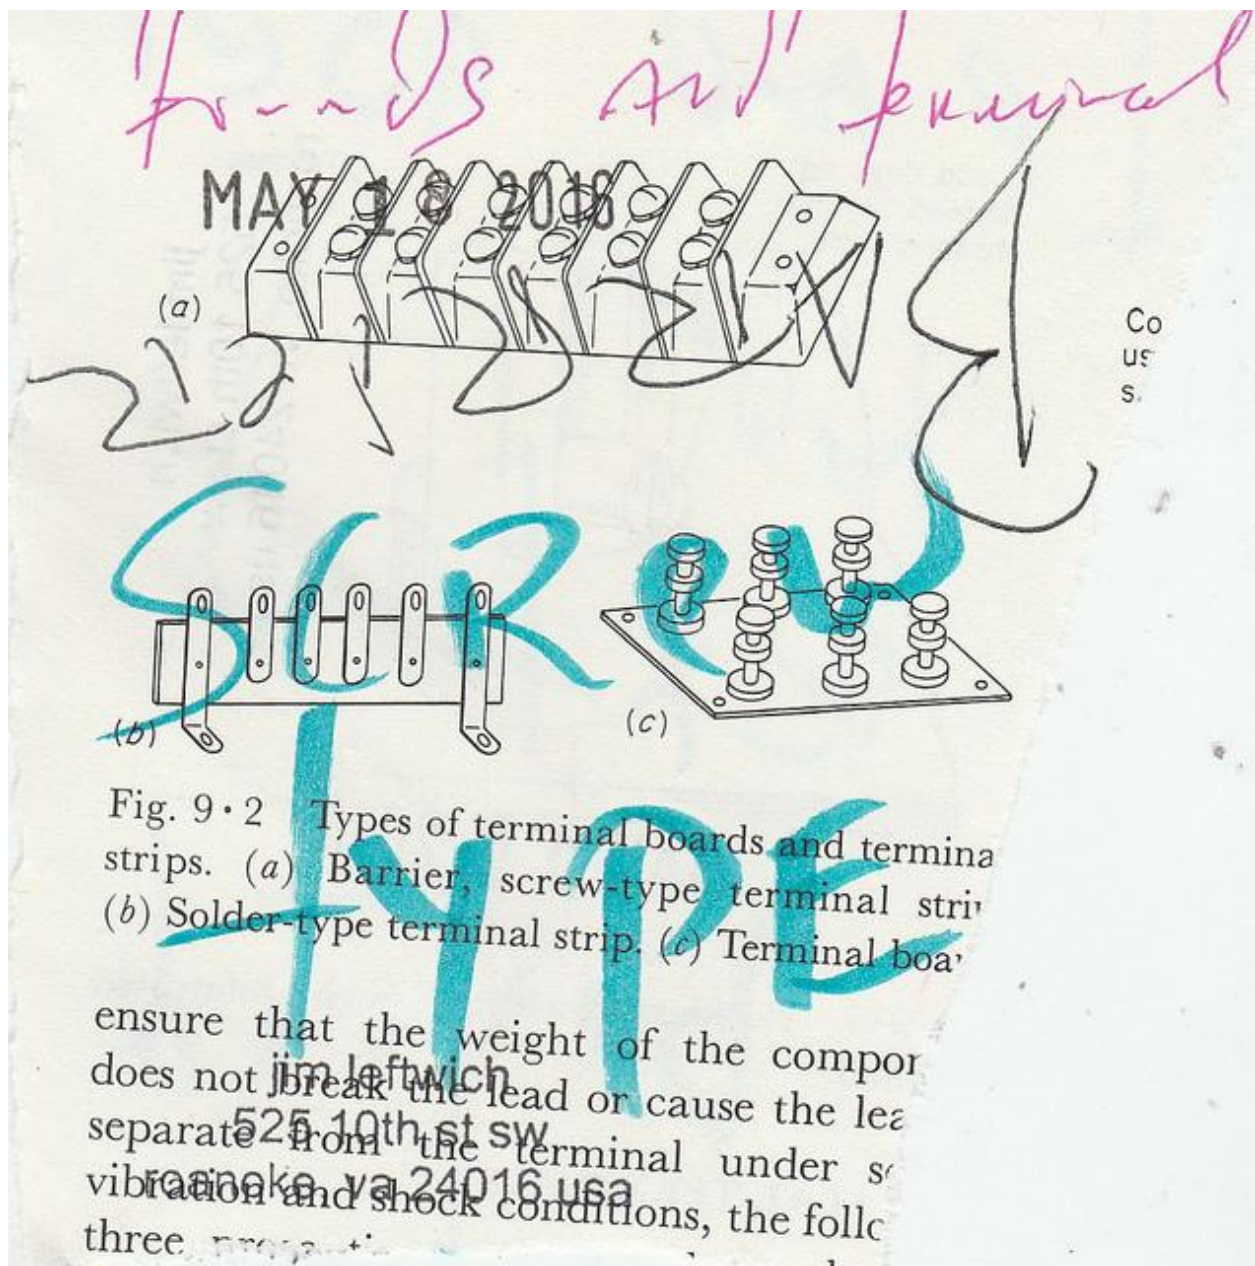 and terminal
MAY 18 2016
(a)
Co
SCRew
(b)
(c)
TYPE
Fig. 9·2 Types of terminal boards and termina
strips. (a) Barrier, screw-type terminal stri
(b) Solder-type terminal strip. (c) Terminal boa
ensure that the weight of the compon
does not break the lead or cause the lea
separate from the terminal under
vibration and shock conditions, the follo
three
jim leftwich
525 10th st sw
roanoke, va 24016 usa